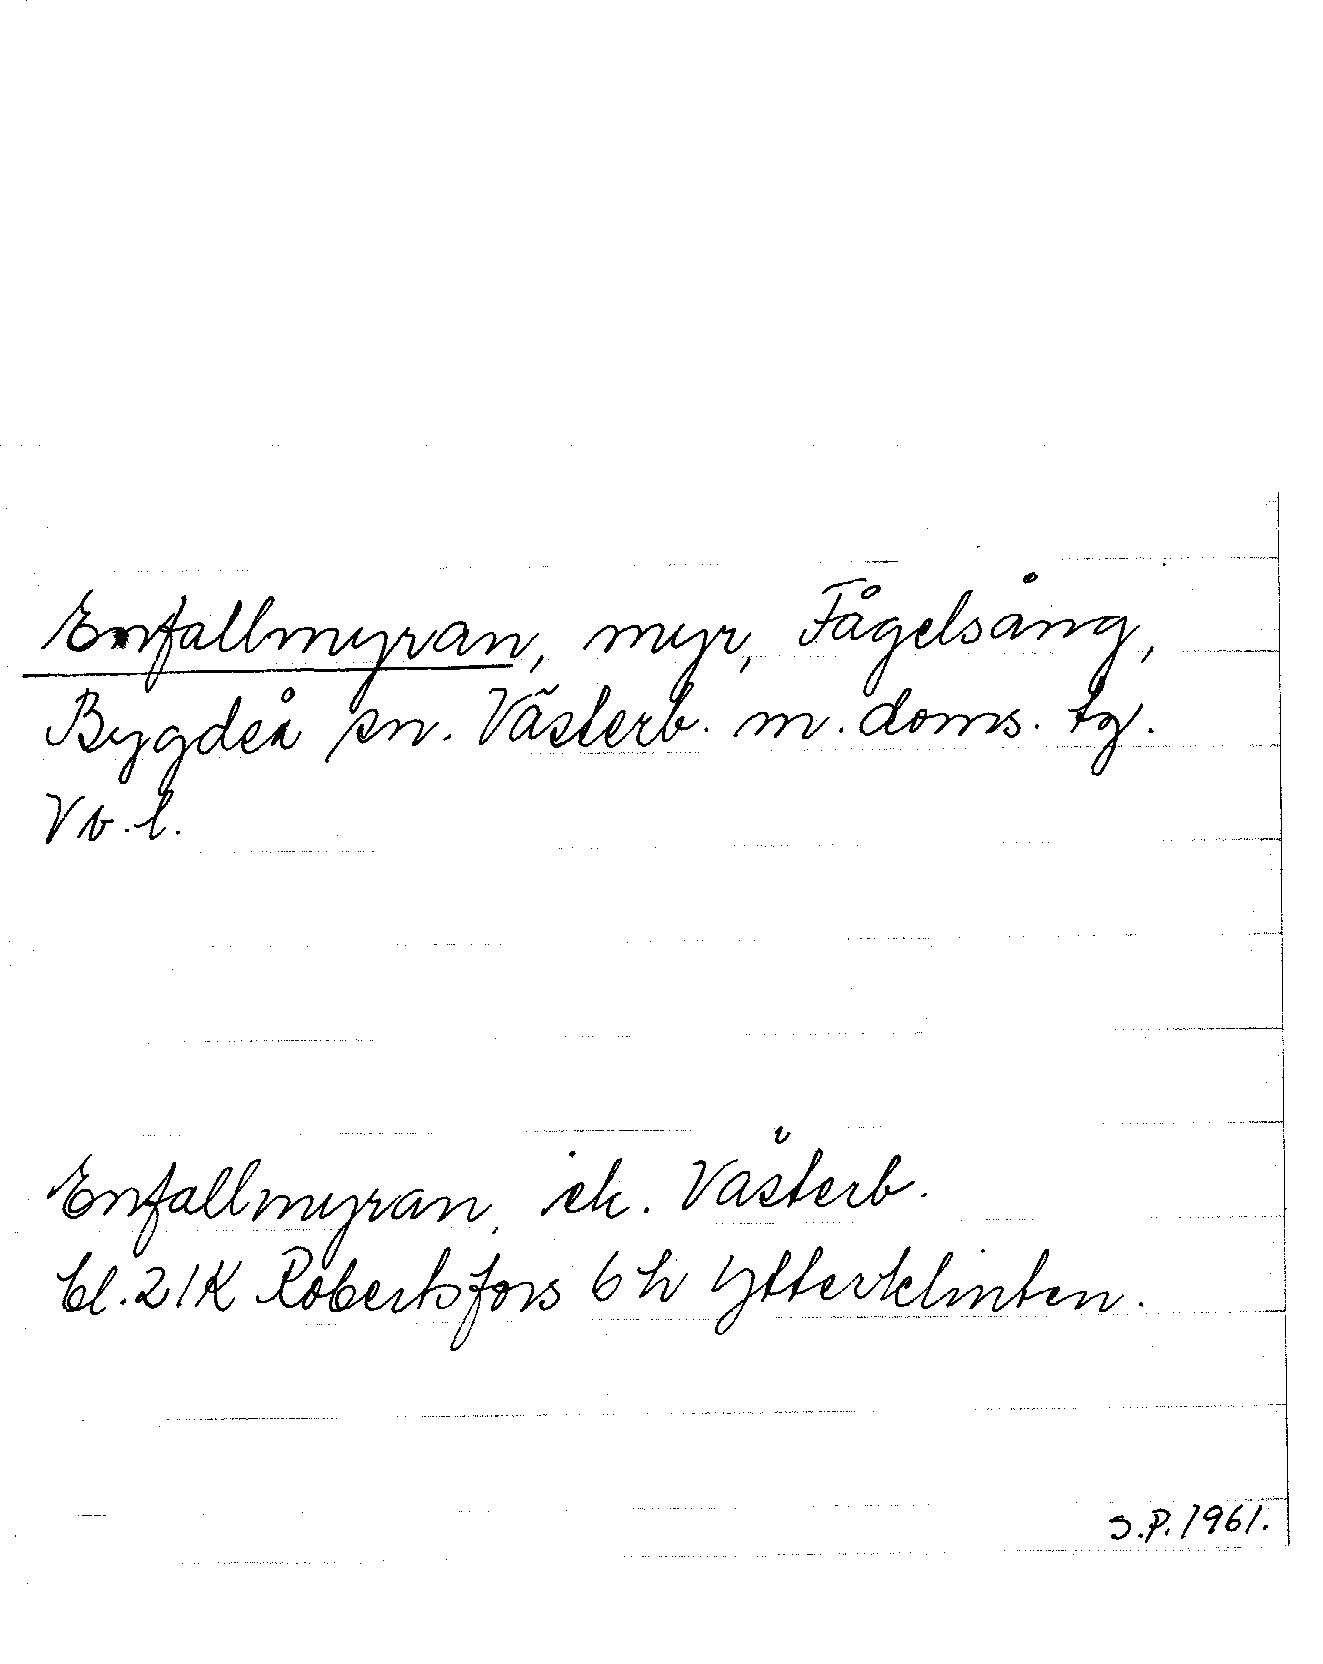 Enfallmyran, myr, Fågelsång,
Bygdeå sn. Västerb. m. doms. tg.
Vb. l.
Enfallmyran, ek. Västerb.
bl. 21K Robertsfors 6h Ytterklinten.
S.P. 1961.